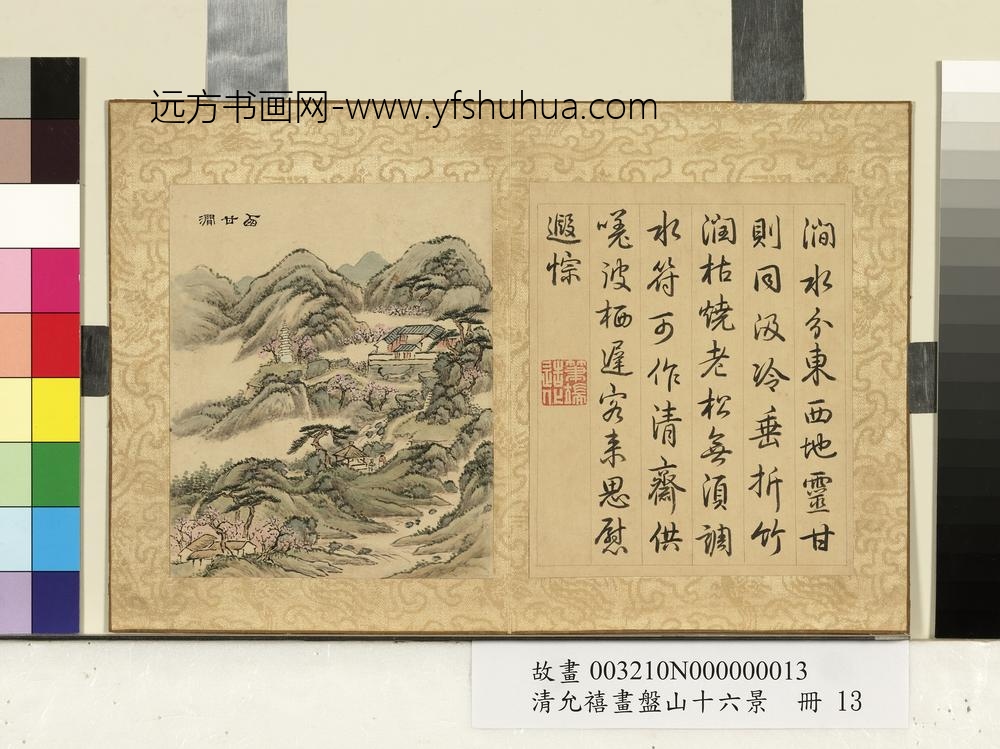 远方书画网-www.yfshuhua.com
西甘澗
澗水分東西地靈甘
則同汲冷垂折竹
潤枯燒老松無須調
水符可作清齋供
嗟彼栖遲客來思慰
遐悰
筆端造化
故畫 003210N000000013
清允禧畫盤山十六景 冊 13